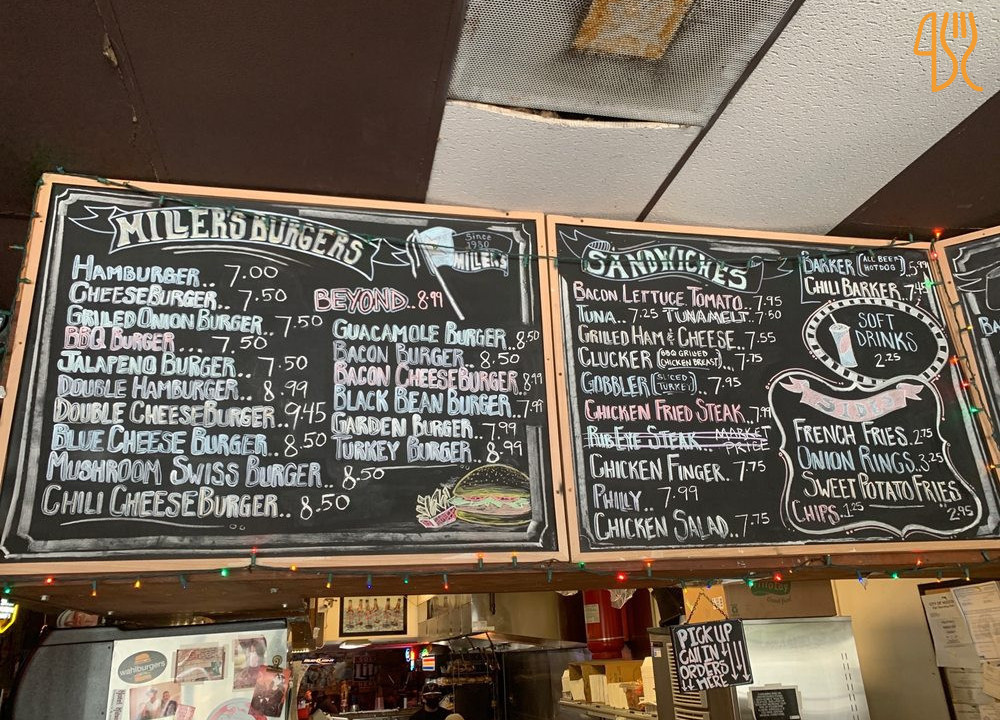 MILLER'S BURGERS
Since
1950
MILLERS
HAMBURGER.. 7.00
CHEESEBURGER.. 7.50
GRILLED ONION BURGER.. 7.50
BBQ BURGER... 7.50
JALAPENO BURGER.. 7.50
DOUBLE HAMBURGER.. 8.99
DOUBLE CHEESEBURGER.. 9.45
BLUE CHEESE BURGER.. 8.50
MUSHROOM SWISS BURGER.. 8.50
CHILI CHEESEBURGER.. 8.50
BEYOND.. 8.99
GUACAMOLE BURGER.. 8.50
BACON BURGER.. 8.50
BACON CHEESEBURGER.. 8.99
BLACK BEAN BURGER.. 7.99
GARDEN BURGER.. 7.99
TURKEY BURGER.. 8.99
SANDWICHES
BACON LETTUCE TOMATO.. 7.95
TUNA.. 7.25 TUNA MELT.. 7.50
GRILLED HAM & CHEESE.. 7.55
CLUCKER (BBQ GRILLED CHICKEN BREAST).. 7.75
GOBBLER (SLICED TURKEY).. 7.95
CHICKEN FRIED STEAK.. 7.99
RIB EYE STEAK.. MARKET PRICE
CHICKEN FINGER.. 7.75
PHILLY.. 7.99
CHICKEN SALAD.. 7.75
BARKER (ALL BEEF HOTDOG).. 5.99
CHILI BARKER.. 7.45
SOFT
DRINKS
2.25
SIDES
FRENCH FRIES.. 2.75
ONION RINGS.. 3.25
SWEET POTATO FRIES
2.95
CHIPS.. 1.25
BA
wahlburgers
PICK UP
CALL IN
ORDERS
HERE